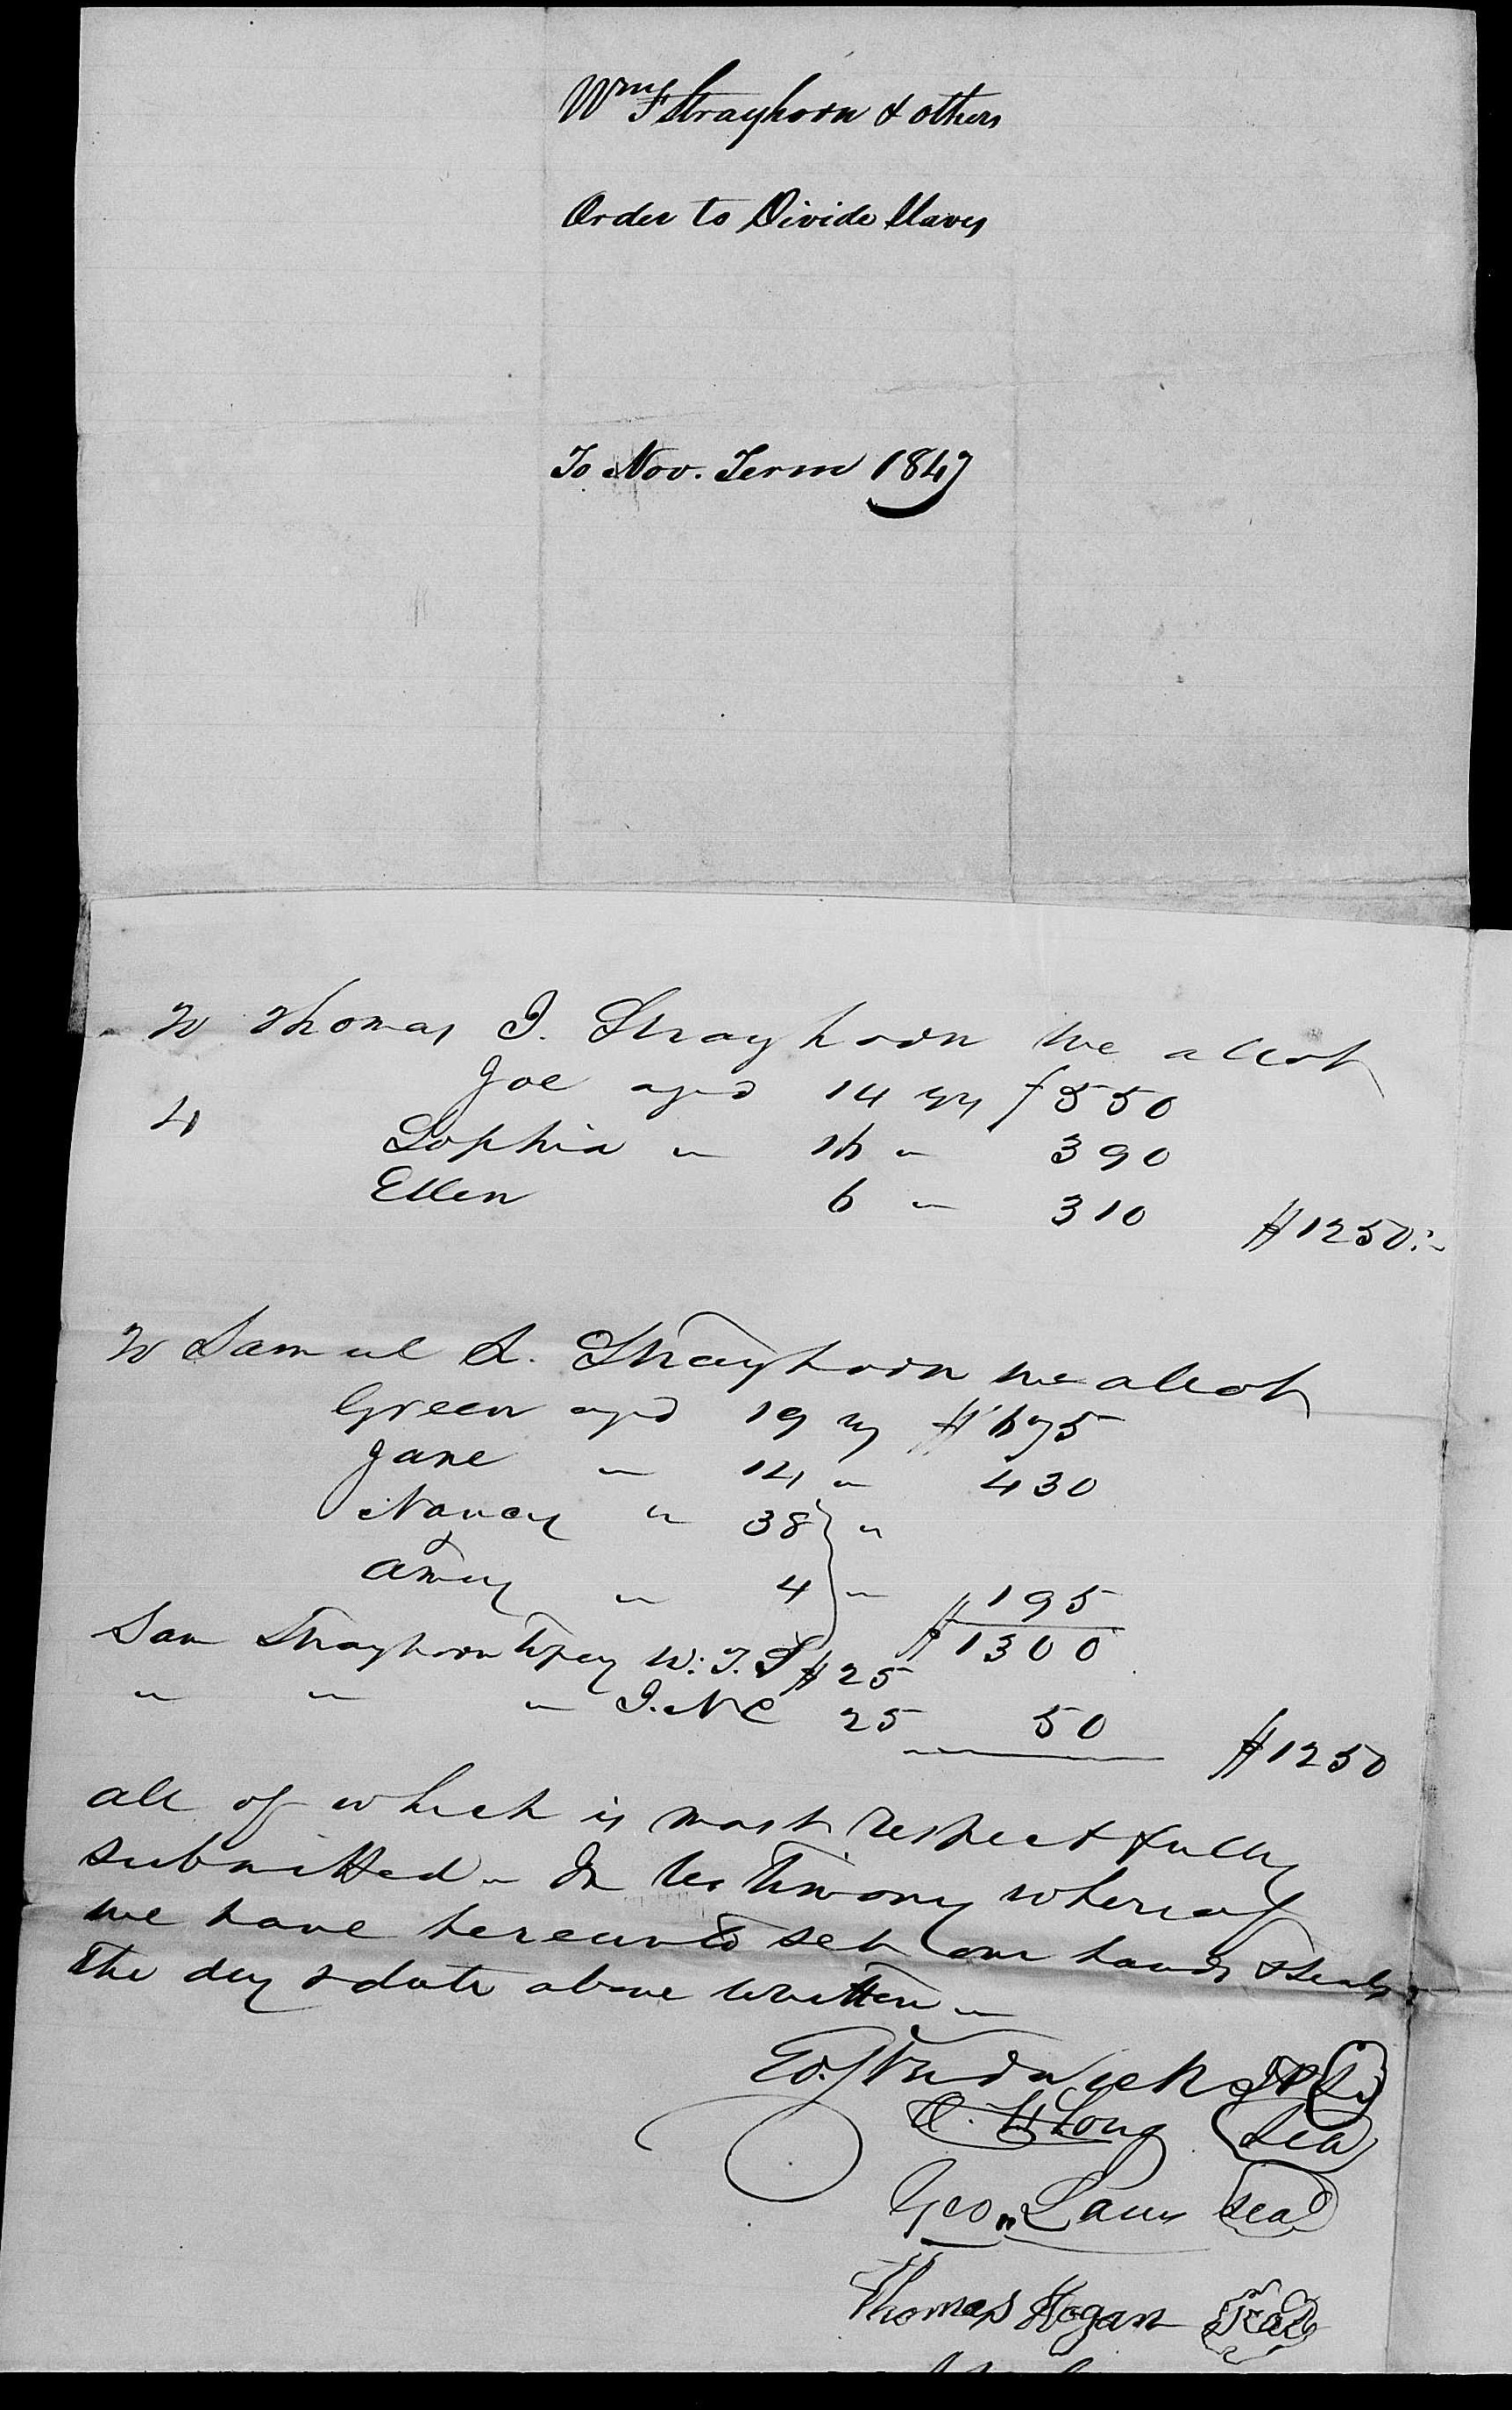 Wm F Strayhorn & others
Order to Divide Slaves
To Nov. Term 1847
To Thomas I. Strayhorn we allot
Joe aged 14 yrs $550
4
Sophia " 16 " 390
Ellen 6 " 310 $1250:-
To Samuel A. Strayhorn we allot
Green aged 19 yrs $675
Jane " 14 " 430
Nancy " 38 "
& Amey " 4 " $195
$1300
Sam Strayhorn to pay W. F. S $25
" " " I. N C 25 50 $1250
all of which is most respectfully
submitted - In testimony whereof
we have hereunto set our hands & seals
the day & date above written -
Ed. Strudwick JP
O. H Long Seal
Geo. Laws Seal
Thomas Hogan Seal